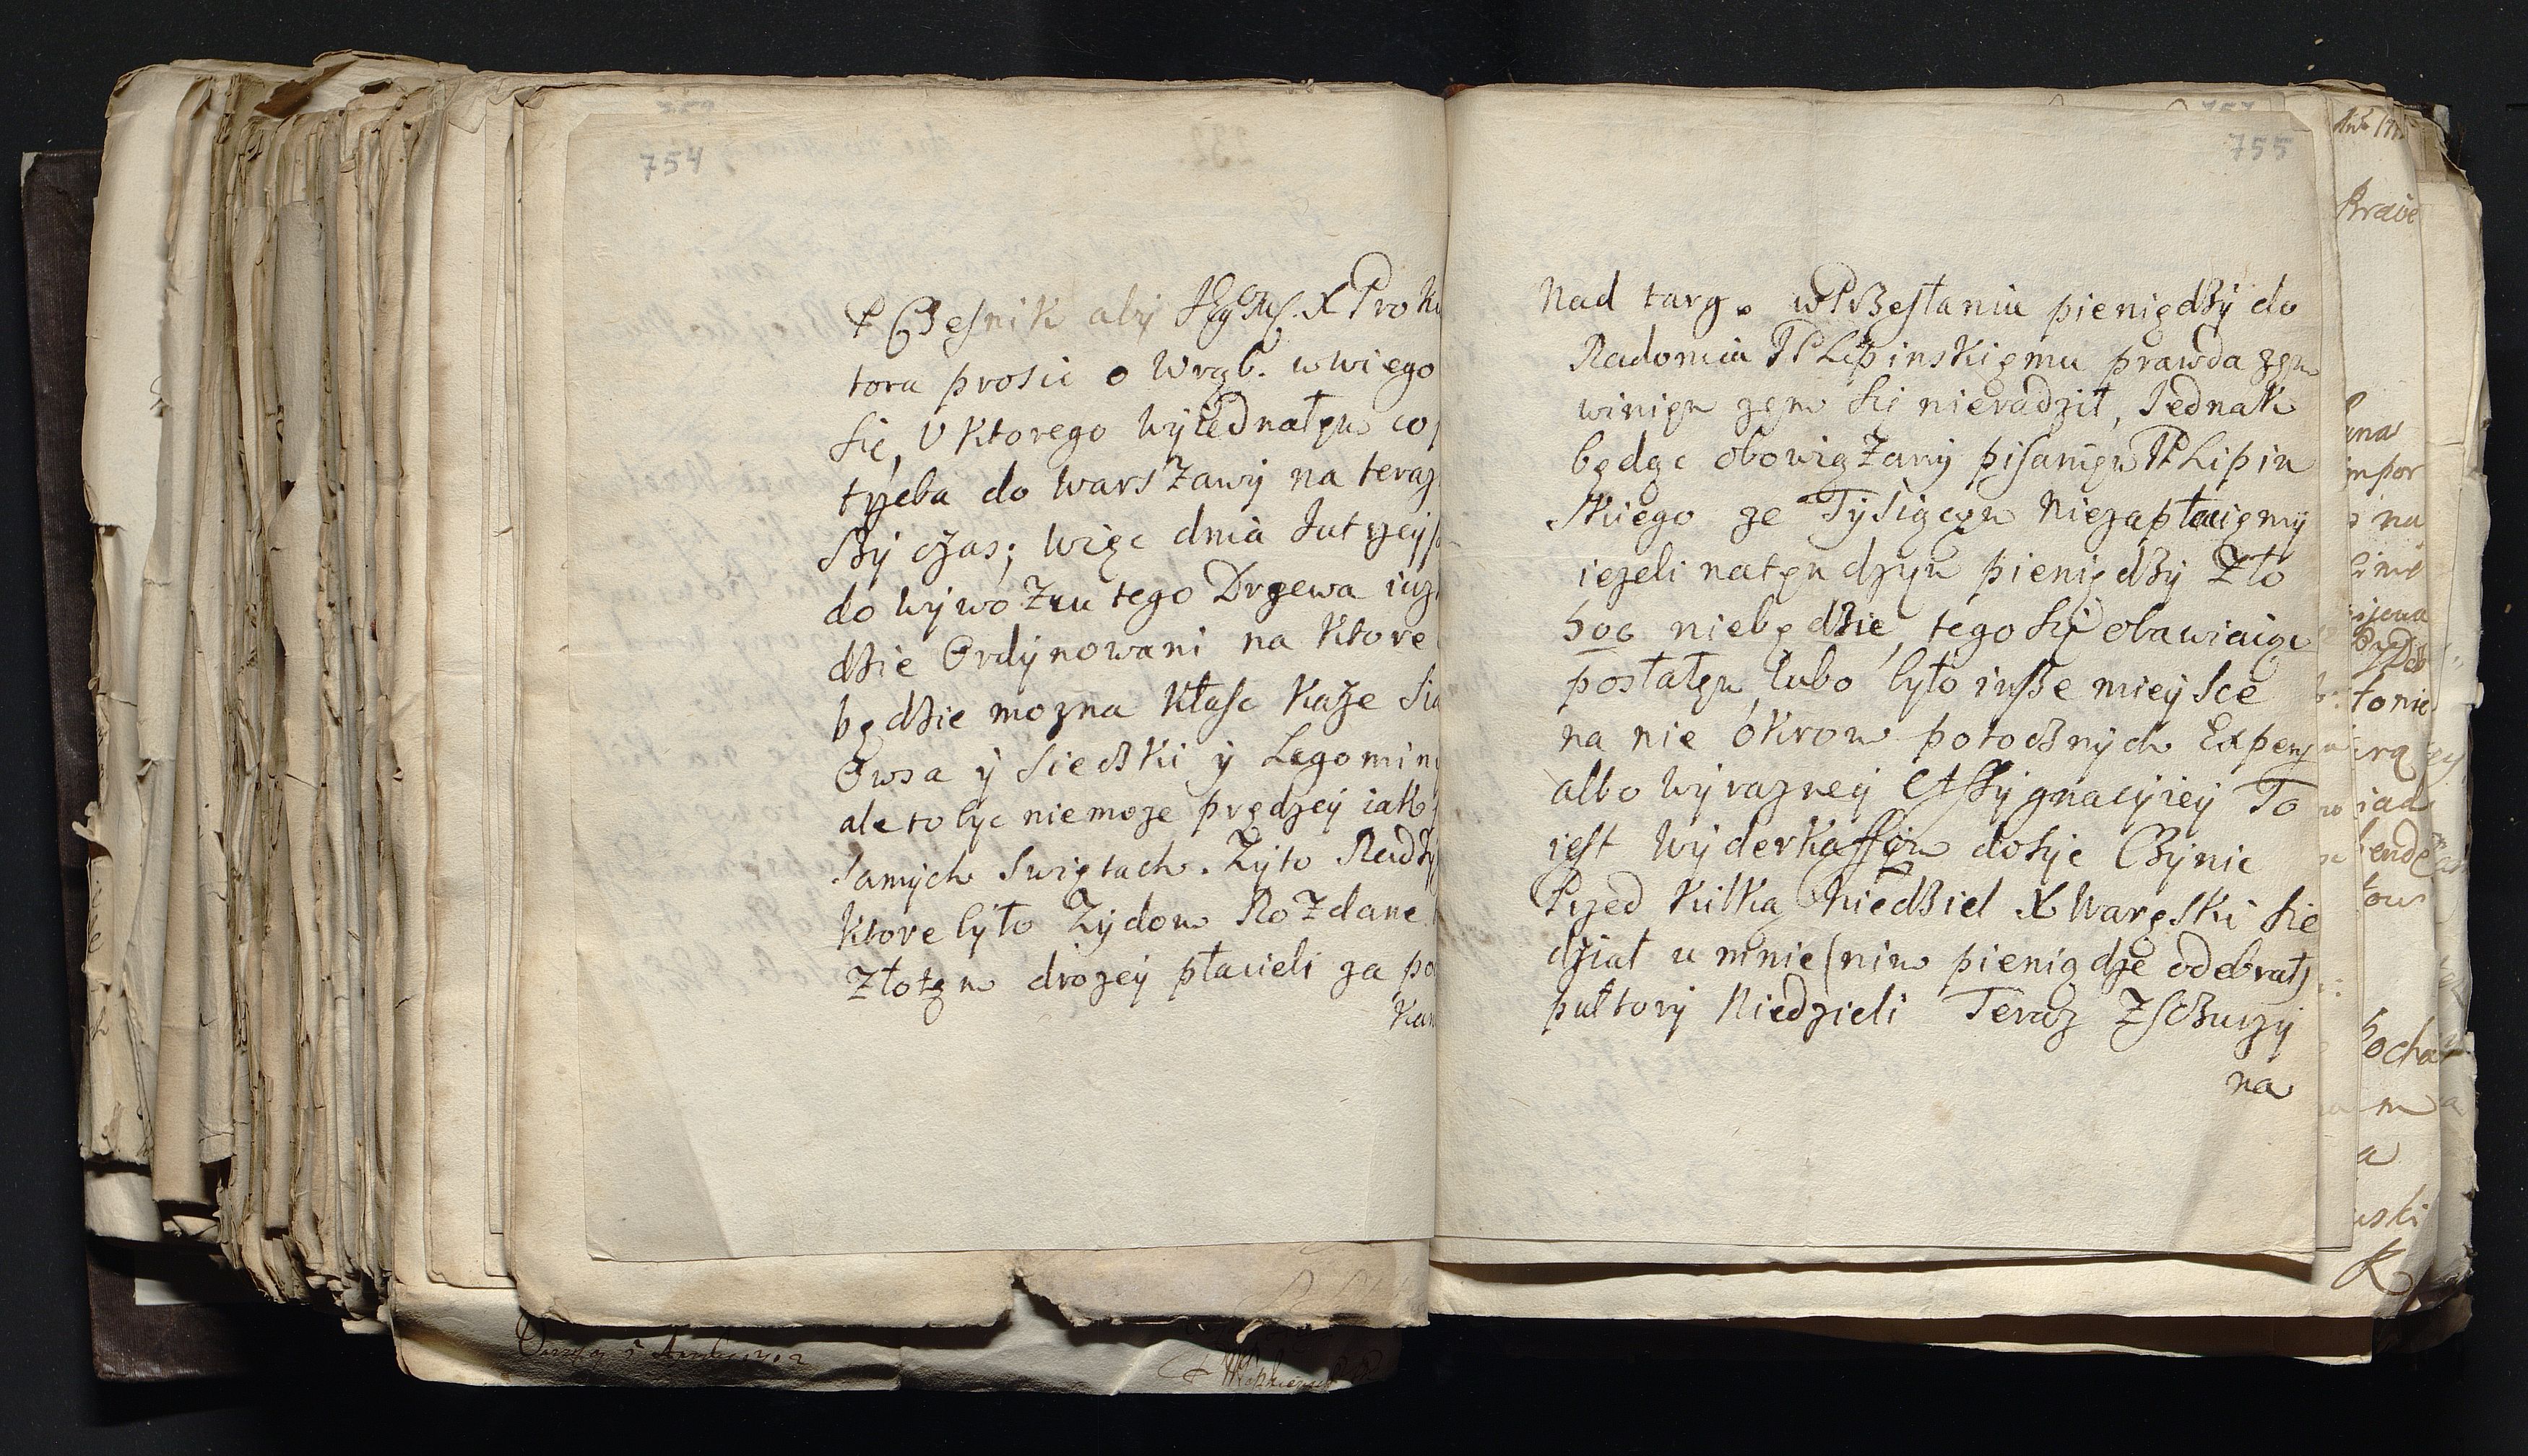 754
P Czesnik aby JegMs. X Proku
tora prosic o Wrąb. wwiego
Się, U Ktorego wyiednałem co
trzeba do WarsZawy na teraz
Szy czas; Więc dnia Jutrzeys
do wywoZnu tego Drzewa iuz
dzie Ordynowani na Ktore
będzie mozna Kłasc Kaze Sia
Owsa y Sieczki y Legomin
ale to byc niemoze prędzey iak
Samych Swiętach. Zyto Radzy
Ktore było Zydom RoZdane
Złotem drozey płacieli za po
Kan
755
Nad targ. wPrzesłaniu pieniędzy do
Radomia JP Lipinskiemu prawda zem
winien zem Się nieradził, Jednak
będąc obowiąZany pisaniem JP Lipin
Skiego ze Tysiącem Niezapłaciemy
iezeli naten dzyn pieniędzy Zło
500 niebędzie, tego Się obawiaiąc
posłałem, lubo było insze mieysce
na nie okrom potocznych Expens
albo wyrazney Assygnacyiey To
iest Wyderkassom dosyc Czynic
Przed Kilką Niedziel X Waręski Sie
dział u mnie (nim pieniądze odebrał)
pułtory Niedzieli Teraz ZSczurzy
na